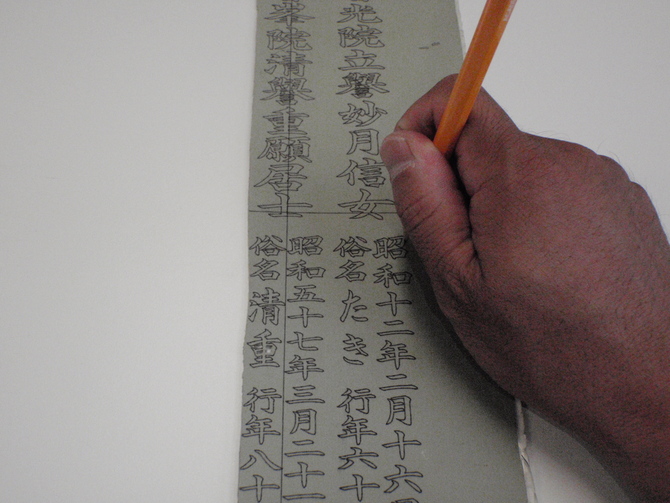 光院立譽妙月信女
昭和十二年二月十六
俗名たき 行年六十
峯院清譽重願居士
昭和五十七年三月二十
俗名清重 行年八十